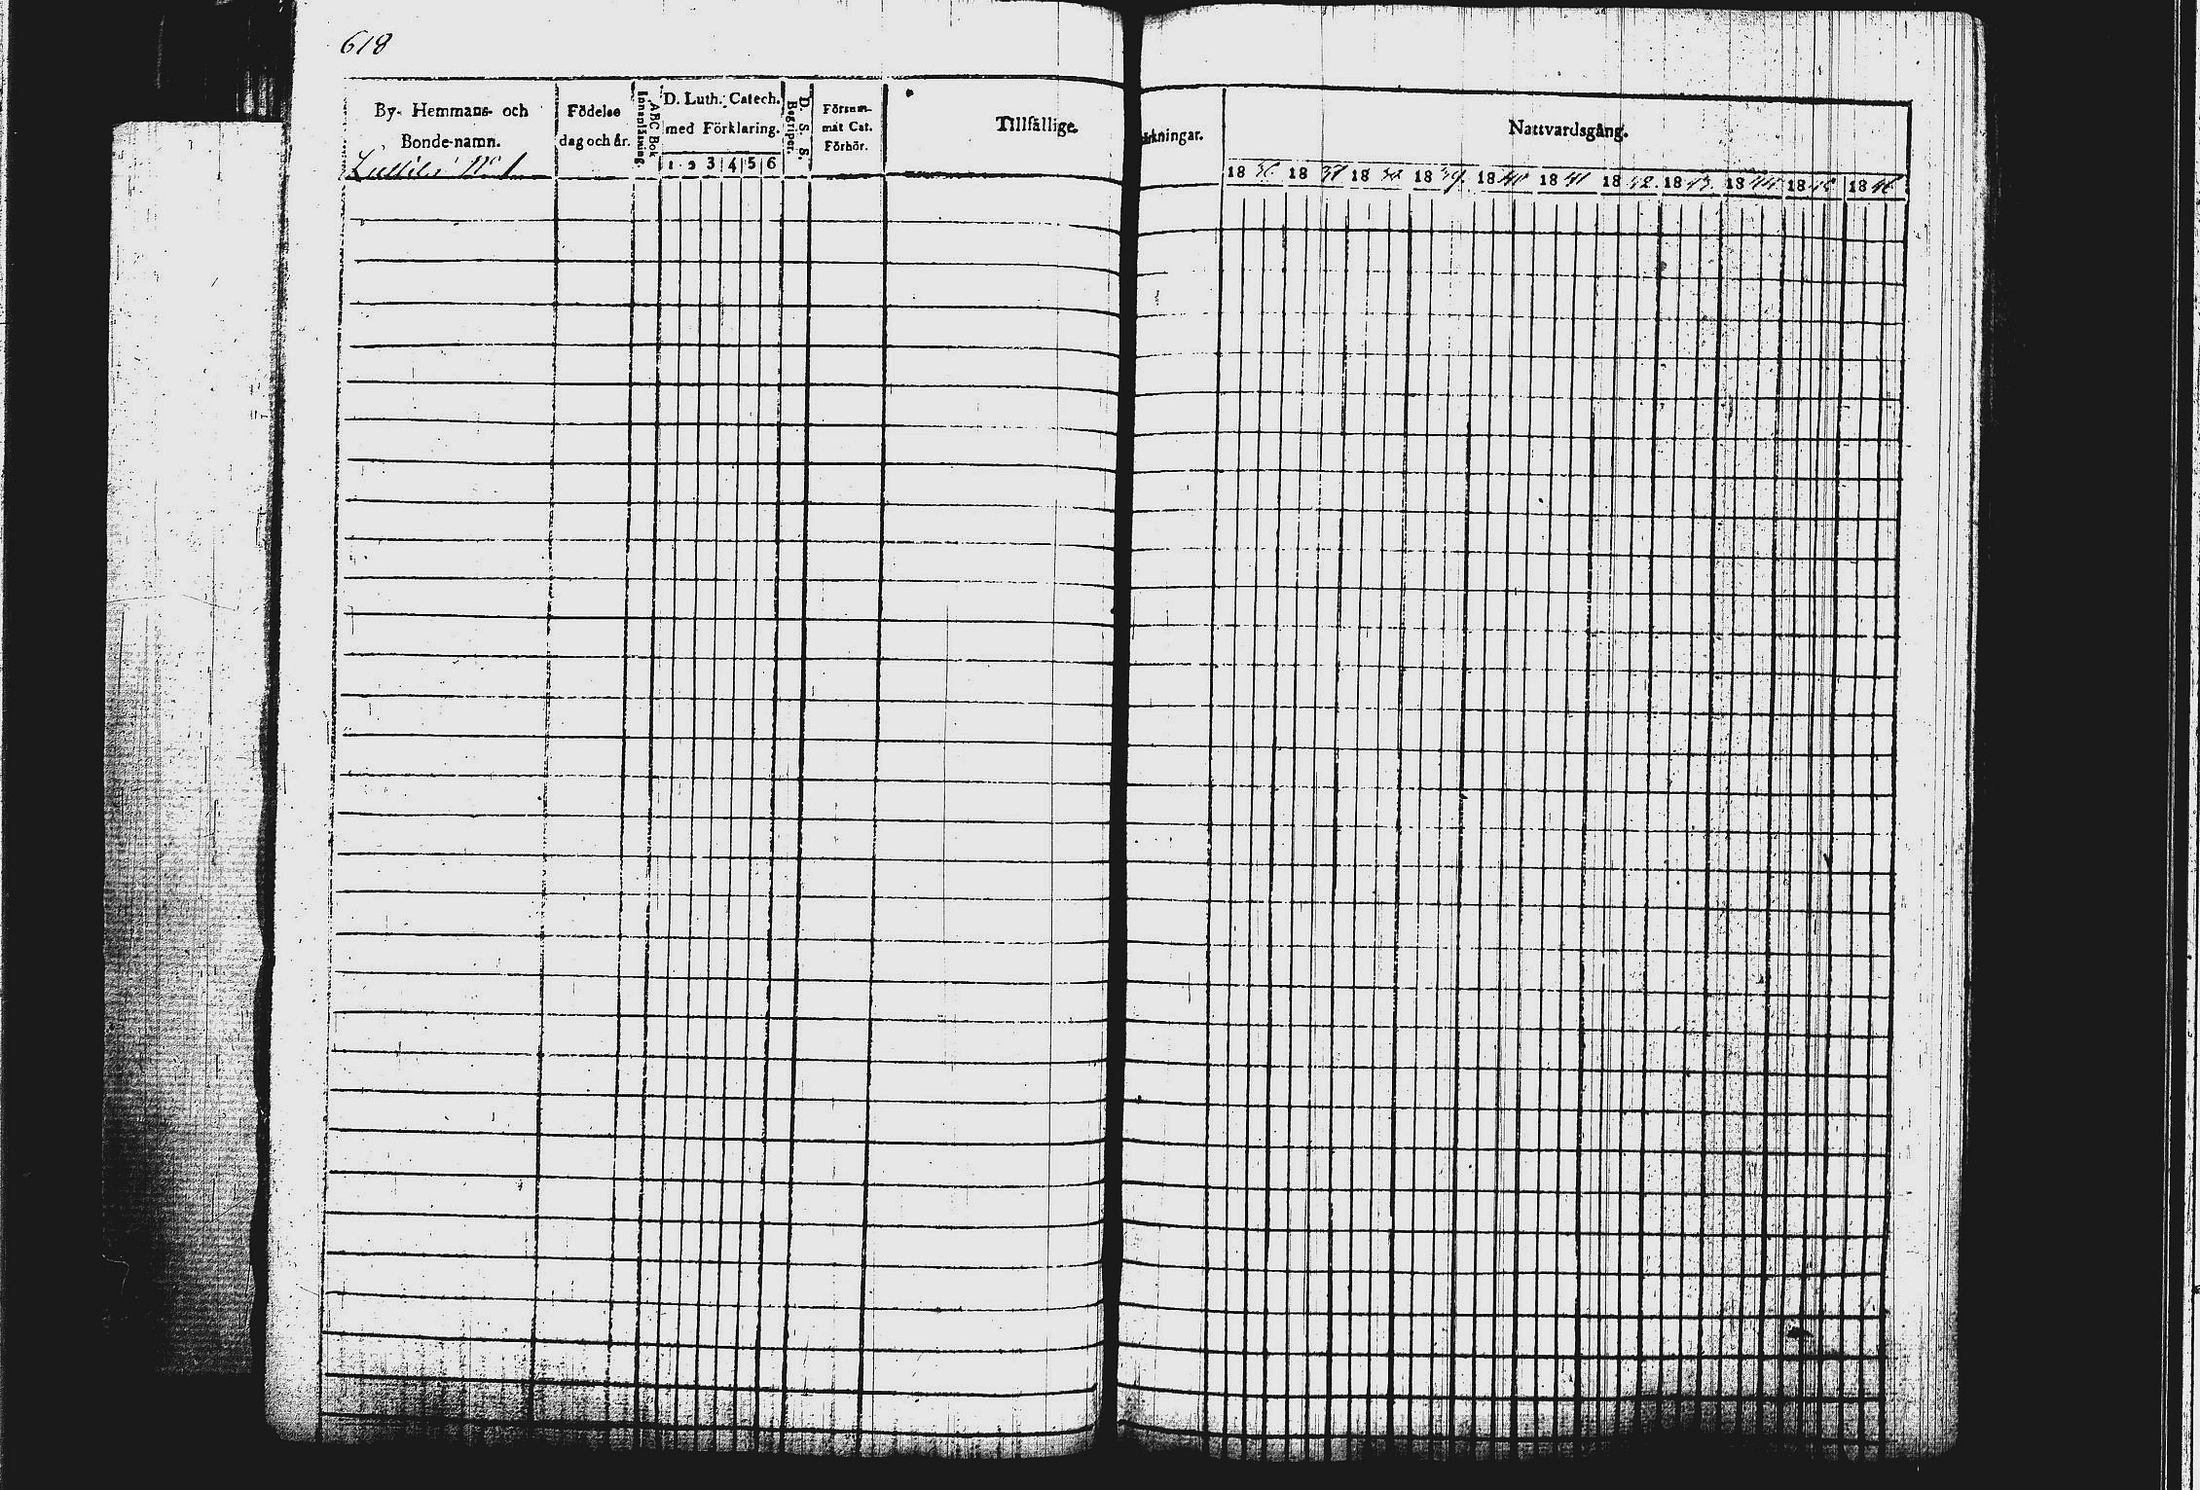 618
By- Hemmans- och
Bonde-namn.
N:o 1
Födelse
dag och år.
ABC Bok
Innanläsning.
D. Luth. Catech.
med Förklaring.
1 2 3 4 5 6
D. S. S.
Begriper.
Försum-
mat Cat.
Förhör.
Tillfällige
ärkningar.
Nattvardsgång.
18 36 18 37 18 38 18 39 18 40 18 41 18 42. 18 43. 18 44 18 45 18 46